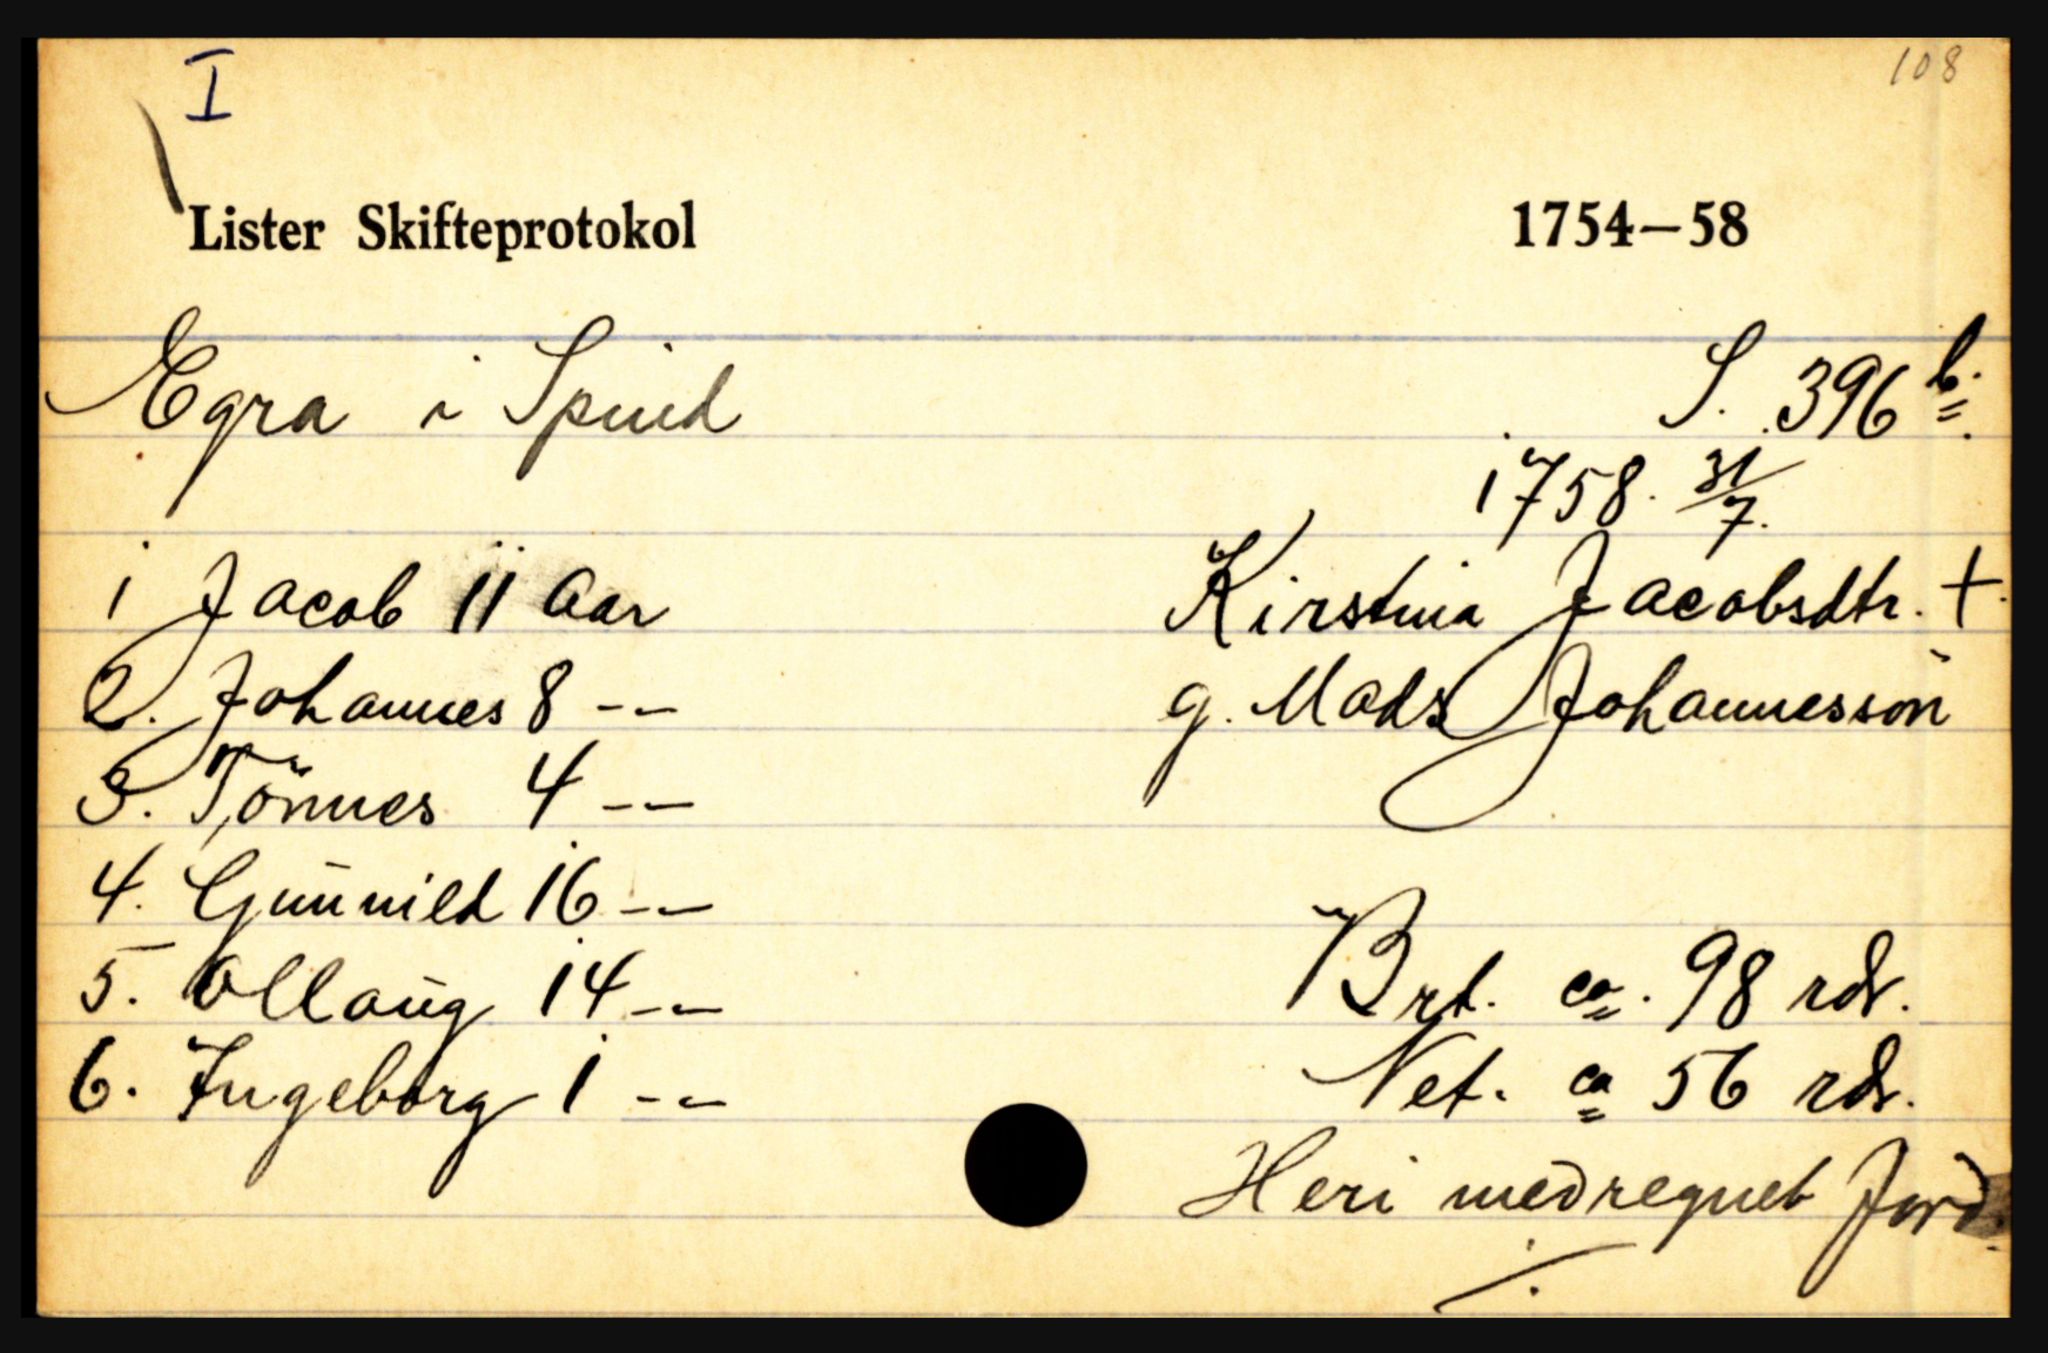 I
108
Lister Skifteprotokol 1754—58
Egra i Spind S. 396 b.
1758. 31/7.
1 Jacob 11 Aar Kirstina Jacobsdtr. +.
2. Johannes 8 -- g. Mads Johannesson
3. Tönnes 4 --
4. Gunnild 16 --
5. Ollaug 14 -- Brt. ca. 98 rdr.
6. Ingeborg 1 -- Net. ca 56 rdr.
Heri medregnet Jord.